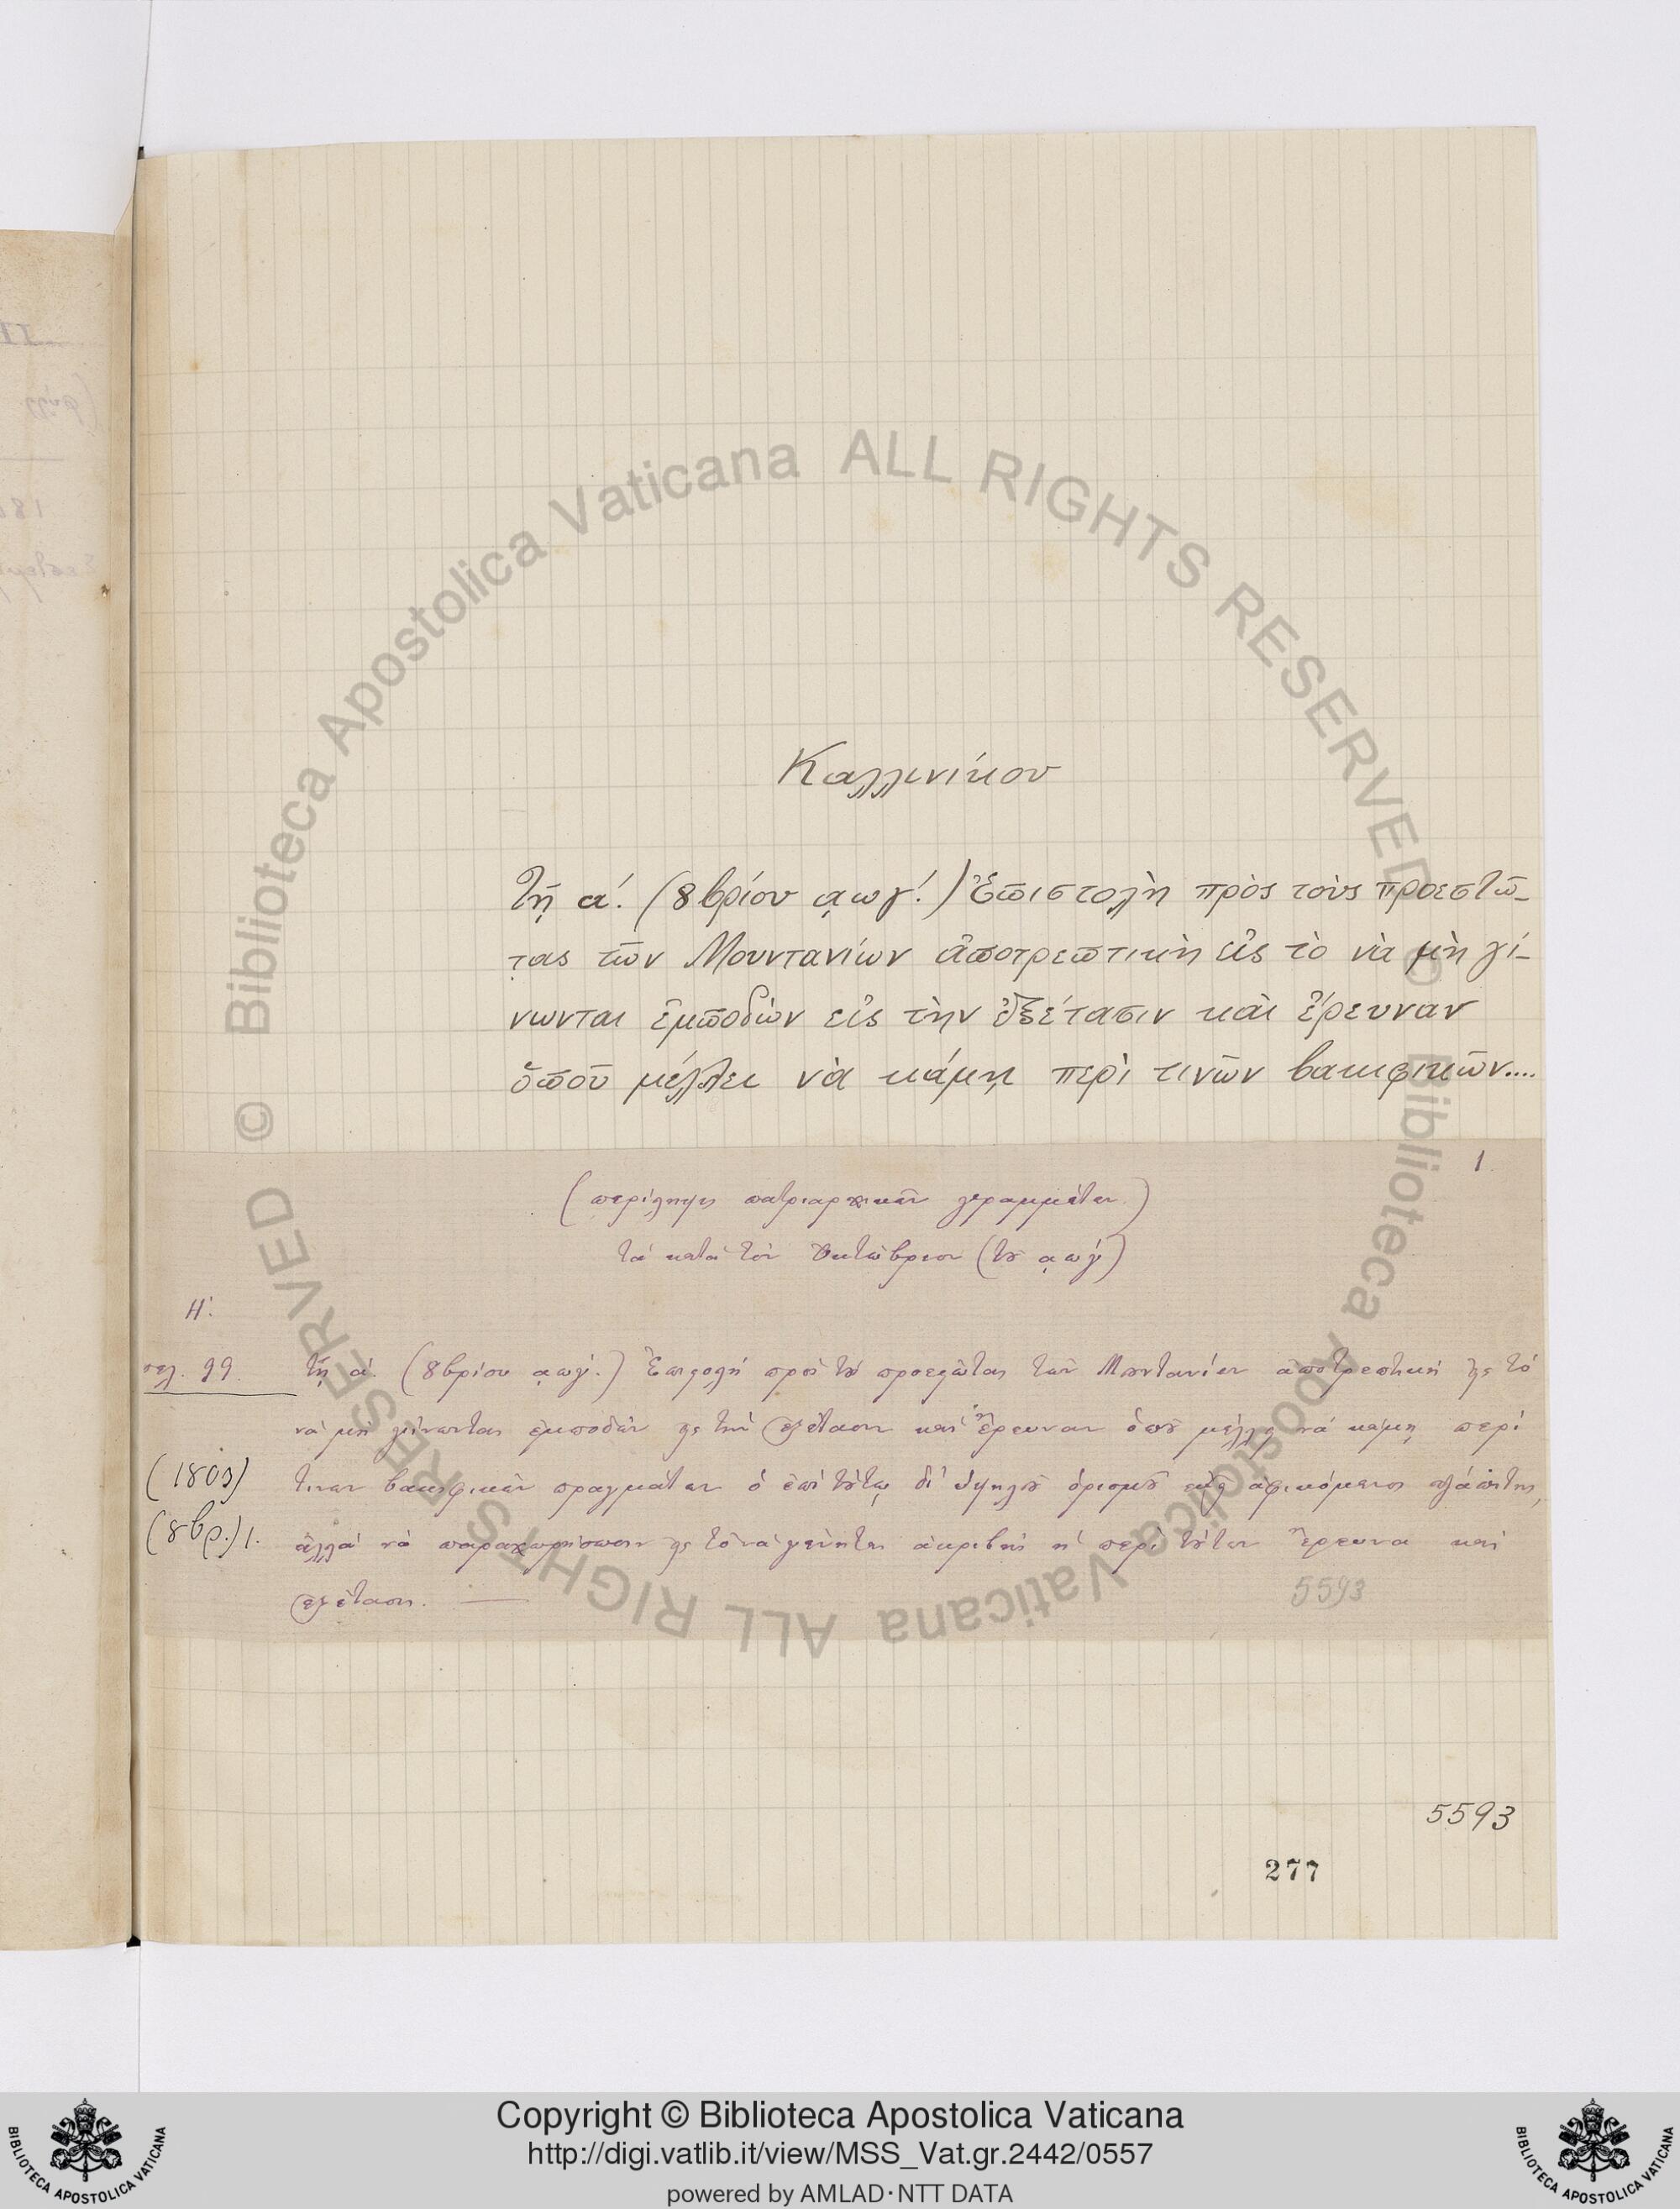 Καλλινίκου
Τῇ α΄. (8βρίου ͵αωγ΄.) Ἐπιστολὴ πρὸς τοὺς προεστῶ-
τας τῶν Μουντανίων ἀποτρεπτικὴ εἰς τὸ νὰ μὴ γί-
νωνται ἐμποδὼν εἰς τὴν ἐξέτασιν καὶ ἔρευναν
ὁποῦ μέλλει νὰ κάμῃ περὶ τινῶν βακιφικῶν....
1.
(περίληψις πατριαρχικῶν γραμμάτων)
τὰ κατὰ τὸν Ὀκτώβριον (τοῦ ͵αωγ΄)
Η΄.
σελ. 99. τῇ α΄. (8βρίου ͵αωγ΄.) Ἐπιστολὴ πρὸς τοὺς προεστῶτας τῶν Μουντανίων ἀποτρεπτικὴ εἰς τὸ
νὰ μὴ γίνωνται ἐμποδὼν εἰς τὴν ἐξέτασιν καὶ ἔρευναν ὁποῦ μέλλει νὰ κάμῃ περὶ
(1803) τινων βακιφικῶν πραγμάτων ὁ ἐπὶ τούτῳ δι' ὑψηλοῦ ὁρισμοῦ ἀφικόμενος
(8βρ.) 1. ἀλλὰ νὰ παραχωρήσωσιν εἰς τὸ νὰ γενῇ ἀκριβὴς ἡ περὶ τούτων ἔρευνα καὶ
ἐξέτασις.
5593
5593
277
© Biblioteca Apostolica Vaticana ALL RIGHTS RESERVED
© Biblioteca Apostolica Vaticana ALL RIGHTS RESERVED
Copyright © Biblioteca Apostolica Vaticana
http://digi.vatlib.it/view/MSS_Vat.gr.2442/0557
powered by AMLAD·NTT DATA
BIBLIOTECA APOSTOLICA VATICANA
BIBLIOTECA APOSTOLICA VATICANA